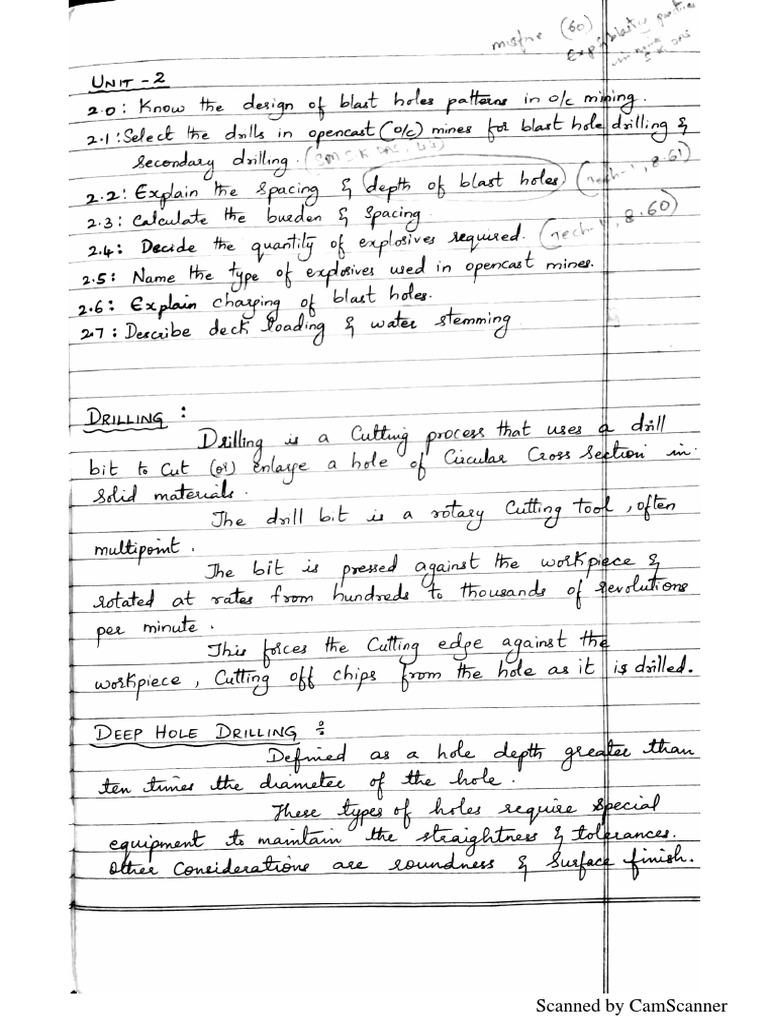 misfire (60)
UNIT - 2
2.0: Know the design of blast holes patterns in o/c mining.
2.1: Select the drills in opencast (o/c) mines for blast hole drilling &
secondary drilling.
2.2: Explain the spacing & depth of blast holes (Tech-1, 8.61)
2.3: Calculate the burden & spacing.
2.4: Decide the quantity of explosives required. (Tech-1, 8.60)
2.5: Name the type of explosives used in opencast mines.
2.6: Explain charging of blast holes.
2.7: Describe deck loading & water stemming
DRILLING :
Drilling is a Cutting process that uses a drill
bit to cut (or) enlarge a hole of Circular Cross section in
solid materials.
The drill bit is a rotary Cutting tool, often
multipoint.
The bit is pressed against the workpiece &
rotated at rates from hundreds to thousands of revolutions
per minute.
This forces the Cutting edge against the
workpiece, Cutting off chips from the hole as it is drilled.
DEEP HOLE DRILLING :
Defined as a hole depth greater than
ten times the diameter of the hole.
These types of holes require special
equipment to maintain the straightness & tolerances.
Other Considerations are roundness & Surface finish.
Scanned by CamScanner